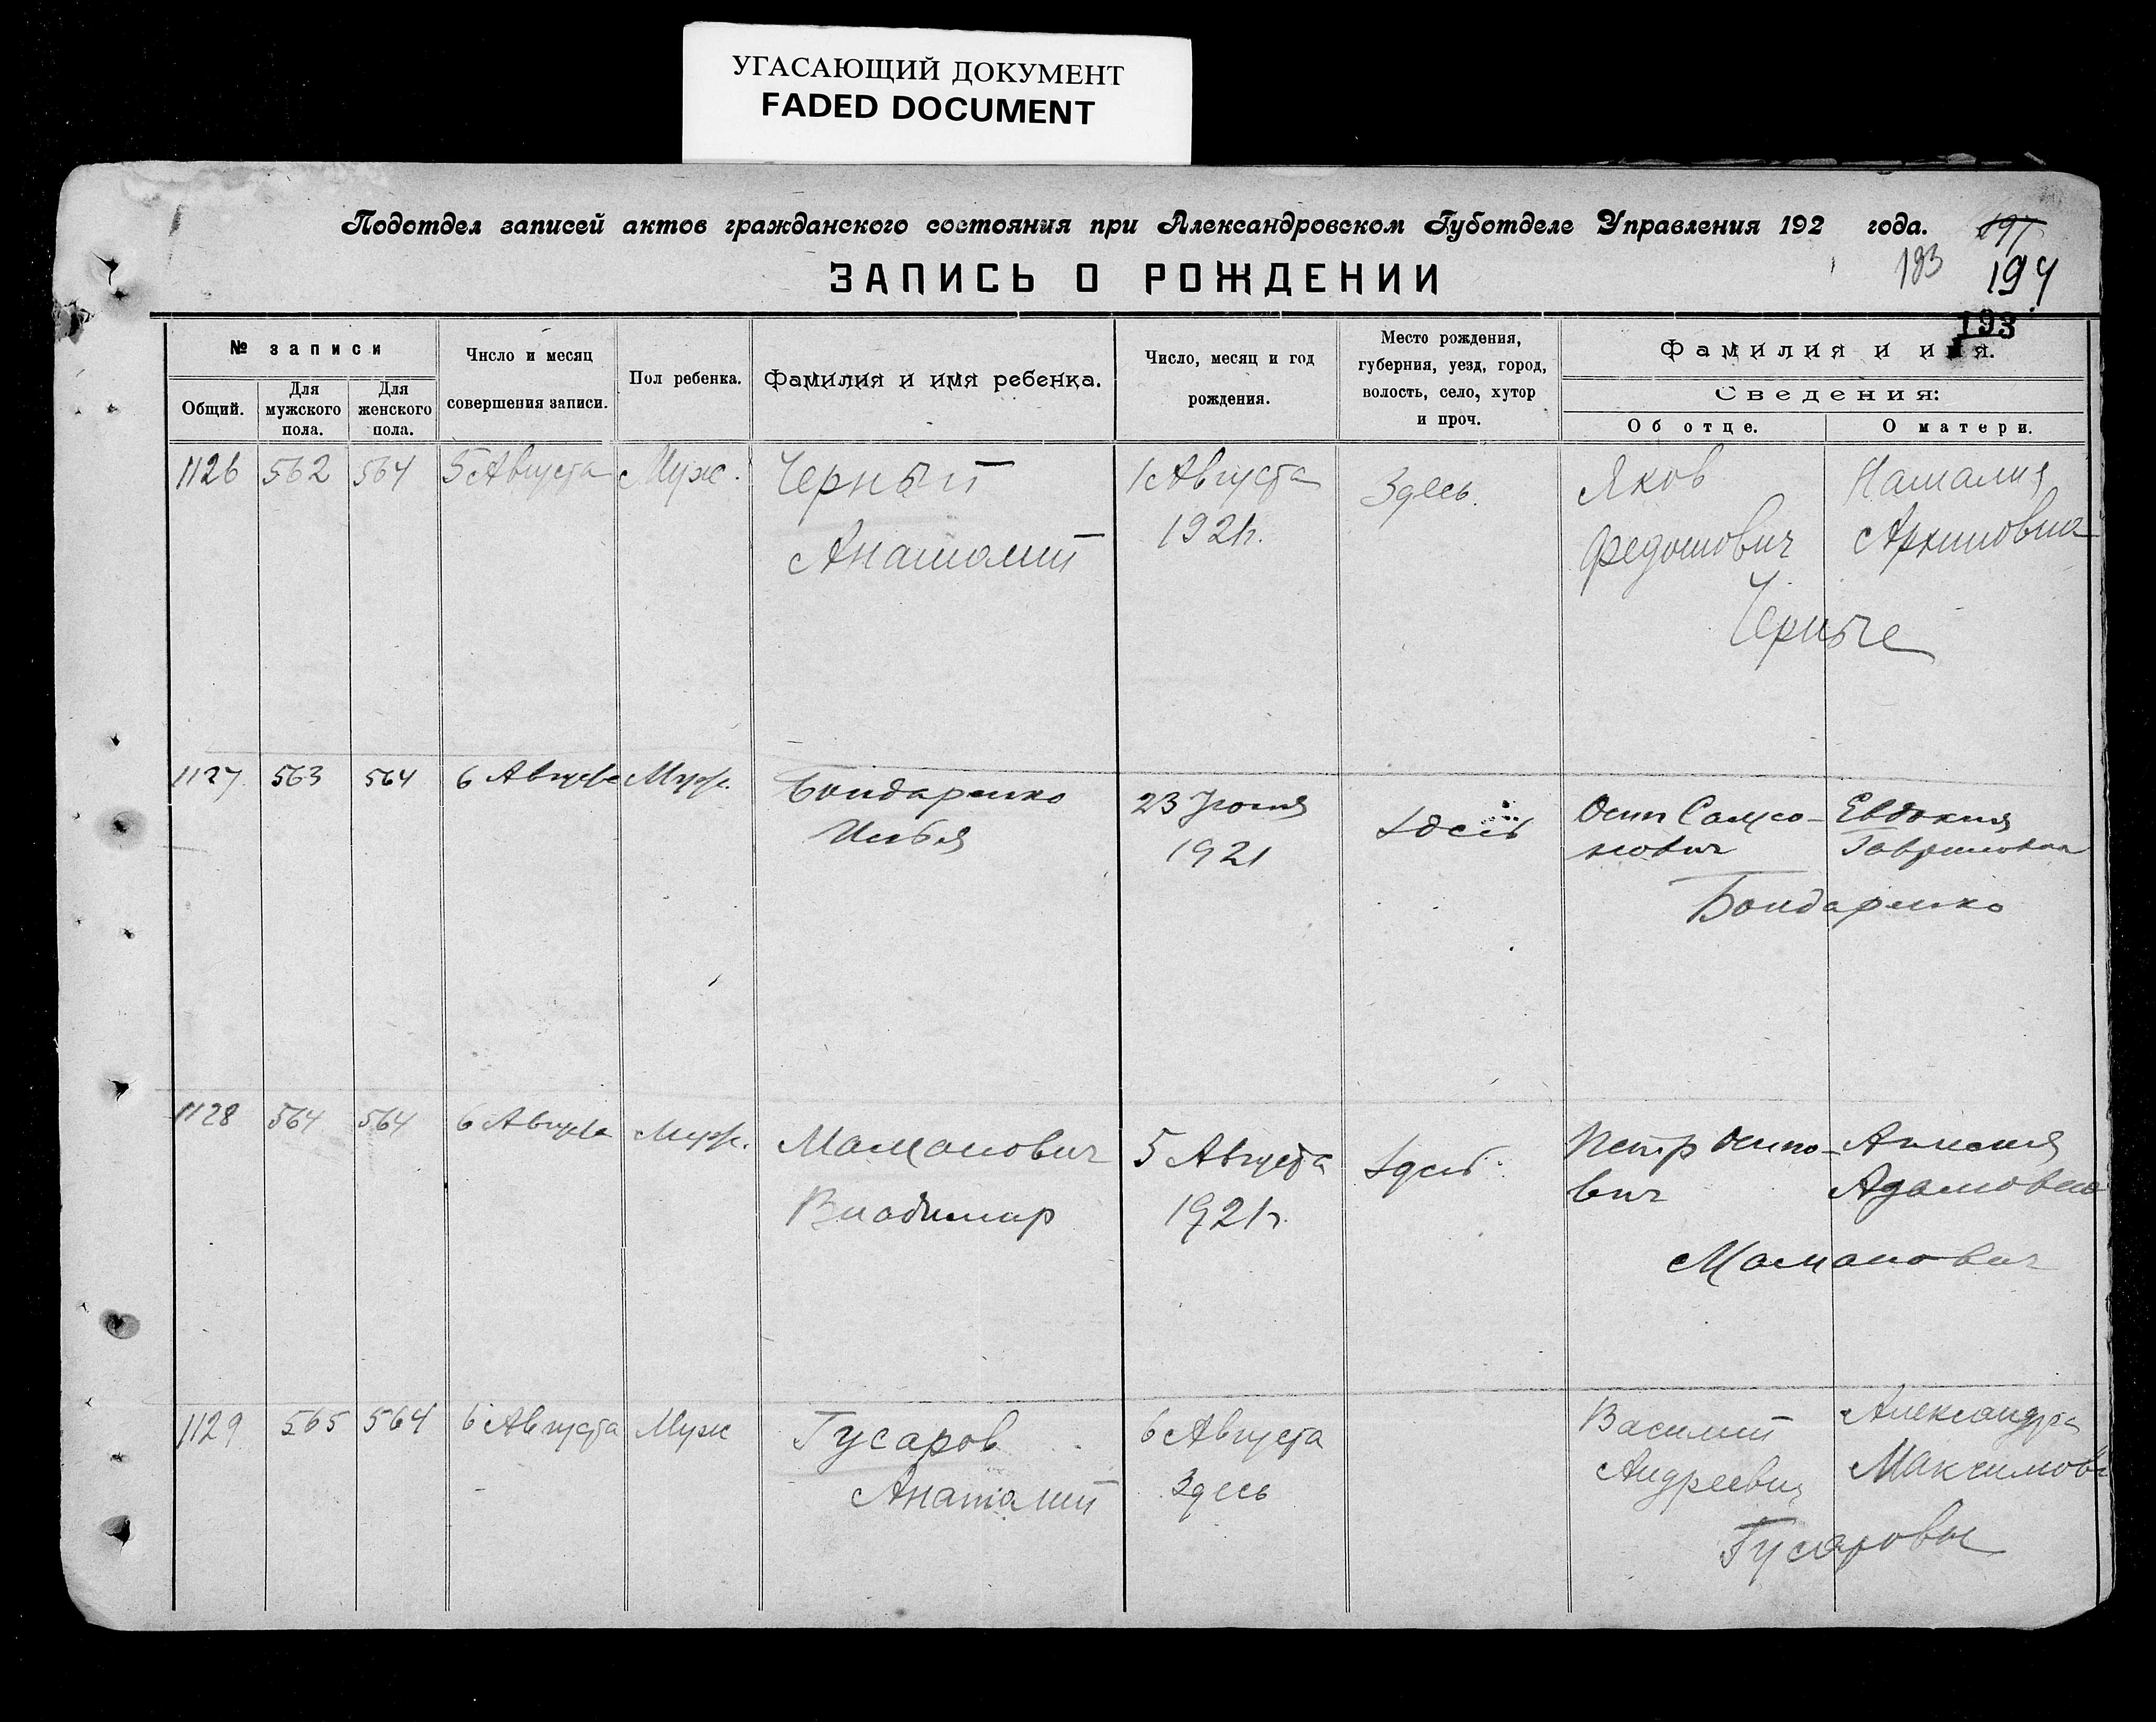 УГАСАЮЩИЙ ДОКУМЕНТ
FADED DOCUMENT
Подотдел записей актов гражданского состояния при Александровском Губотделе Управления 192 года.
183 194
193
ЗАПИСЬ О РОЖДЕНИИ
№ записи
Общий.
Для мужского пола.
Для женского пола.
Число и месяц совершения записи.
Пол ребенка.
Фамилия и имя ребенка.
Число, месяц и год рождения.
Место рождения, губерния, уезд, город, волость, село, хутор и проч.
Фамилия и имя.
Сведения:
Об отце.
О матери.
1126 562 564 5 Августа Муж. Черный 1 Августа Здесь. Яков Наталия
Анатолий 1921г. Федотович Архиповна
Черные
1127 563 564 6 Августа Муж. Бондаренко 23 Июня Здесь Осип Самсо- Евдокия
Илья 1921 нович Гавриловна
Бондаренко
1128 564 564 6 Августа Муж. Маманович 5 Августа Здесь Петр Осипо-
Владимир 1921г. вич Адамовна
Маманович
1129 565 564 6 Августа Муж Гусаров 6 Августа Василий Александра
Анатолий Здесь Андреевич Максимов
Гусаровы